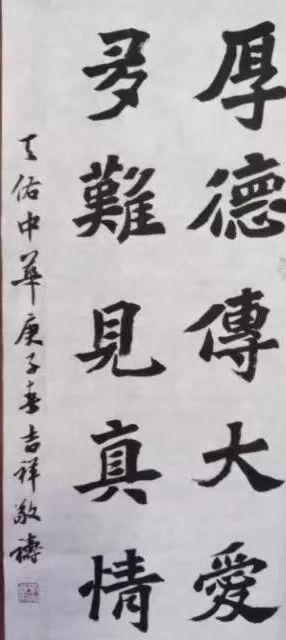 厚德傳大愛
多難見真情
天佑中華庚子春吉祥敬禱